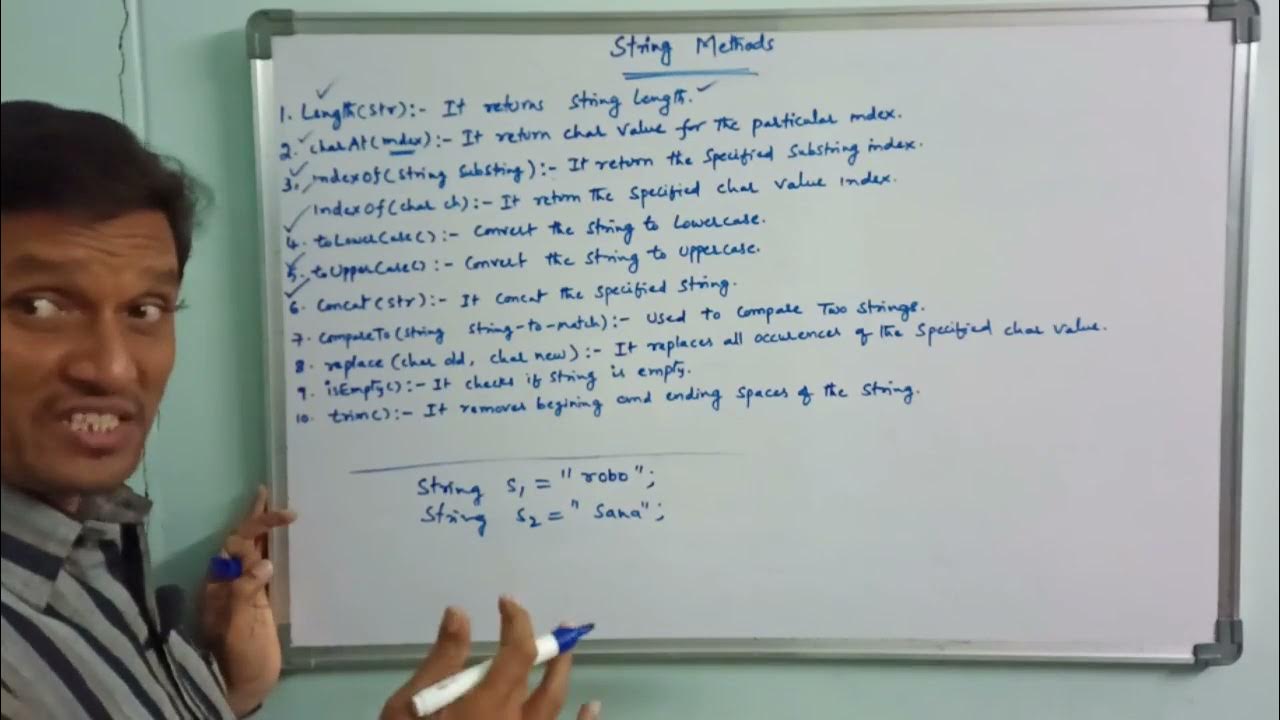 String Methods
1. Length(str):- It returns string length.
2. charAt(index):- It return char value for the particular index.
3. indexOf(string substring):- It return the specified substring index.
indexOf(char ch):- It return the specified char value index.
4. toLowerCase():- Convert the string to Lowercase.
5. toUpperCase():- Convert the string to uppercase.
6. Concat(str):- It concat the specified string.
7. compareTo(string string-to-match):- Used to compare Two strings.
8. replace(char old, char new):- It replaces all occurences of the specified char value.
9. isEmpty():- It checks if string is empty.
10. trim():- It removes begining and ending spaces of the string.
String s1 = "robo";
String s2 = "sana";